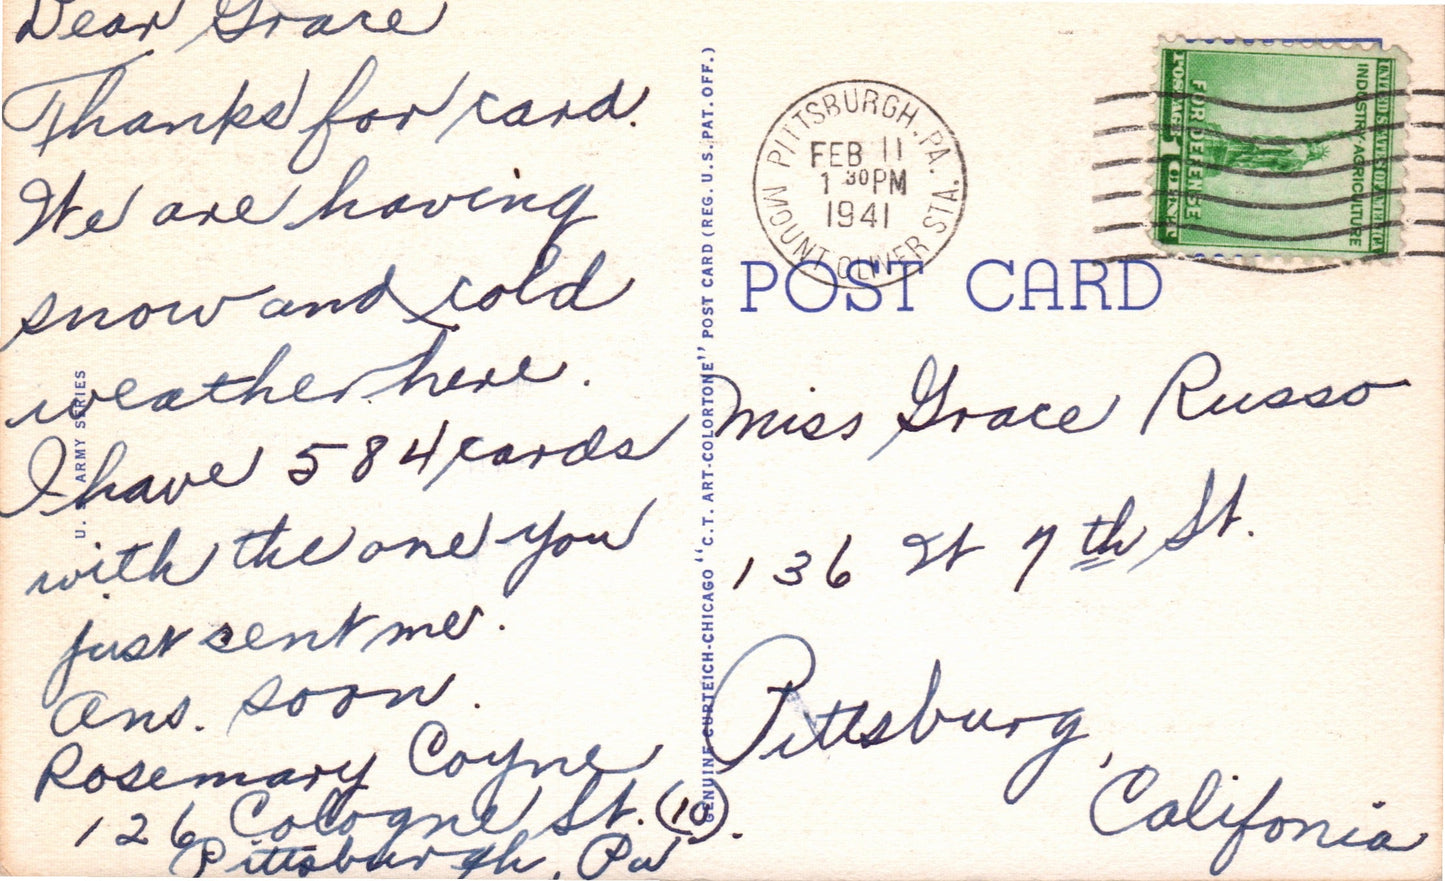 Dear Grace
Thanks for card.
We are having
snow and cold
weather here.
I have 584 cards
with the one you
just sent me.
Ans. soon.
Rosemary Coyne
126 Cologne St. (10).
Pittsburgh, Pa
U. ARMY SERIES
GENUINE CURTEICH-CHICAGO "C.T. ART-COLORTONE" POST CARD (REG. U.S. PAT. OFF.)
PITTSBURGH, PA.
FEB 11
1 30PM
1941
MOUNT OLIVER STA.
UNITED STATES OF AMERICA
INDUSTRY AGRICULTURE
FOR DEFENSE
POSTAGE 1 CENT
POST CARD
Miss Grace Russo
136 W 7th St.
Pittsburg,
Califonia